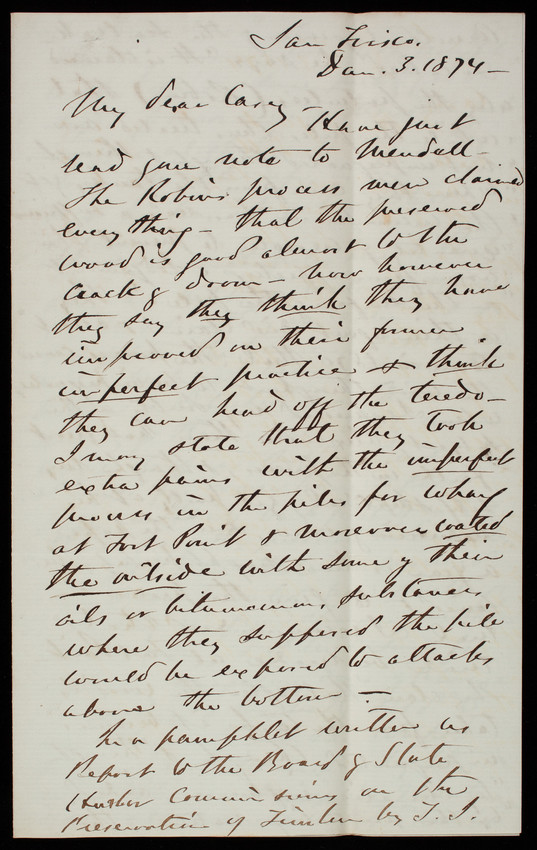 San Frisco.
Jan. 3. 1874 –
My dear Casey –
Have just
read your note to Mendell –
The Robins process men claimed
everything – that the preserved
wood is good almost to the
crack of doom – now however
they say they think they have
improved on their former
imperfect practice & think
they can head off the teredo –
I may state that they took
extra pains with the imperfect
process in the piles for wharf
at Fort Point & moreover coated
the outside with some of their
oils or bituminous substances
where they supposed the pile
would be exposed to attacks
above the bottom –
In a pamphlet written as
Report to the Board of State
Harbor Commissioners on the
Preservation of Timber by T. J.